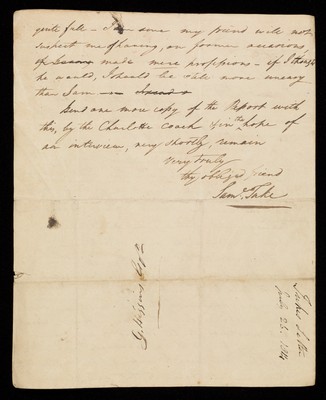 quite full - I am sure my friend will not
suspect me of having, on former occasions,
made mere professions - if I thought
he would, I should be still more uneasy
than I am
Send one more copy of the Report with
this, by the Charlotte coach & in the hope of
an interview, very shortly, remain
very truly
thy obliged friend
Saml. Tuke
Tukes Letter
25. 1814